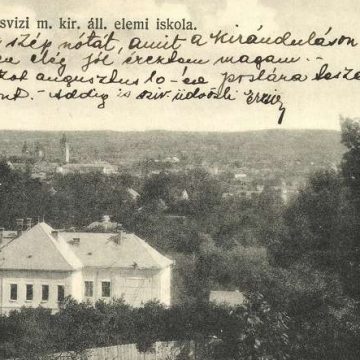 svizi m. kir. áll. elemi iskola.
szép nótát, amit a kiránduláson
elég jól éreztem magam..
augusztus 10-én postára tesze
Addig is szív. üdvözli Erzsi